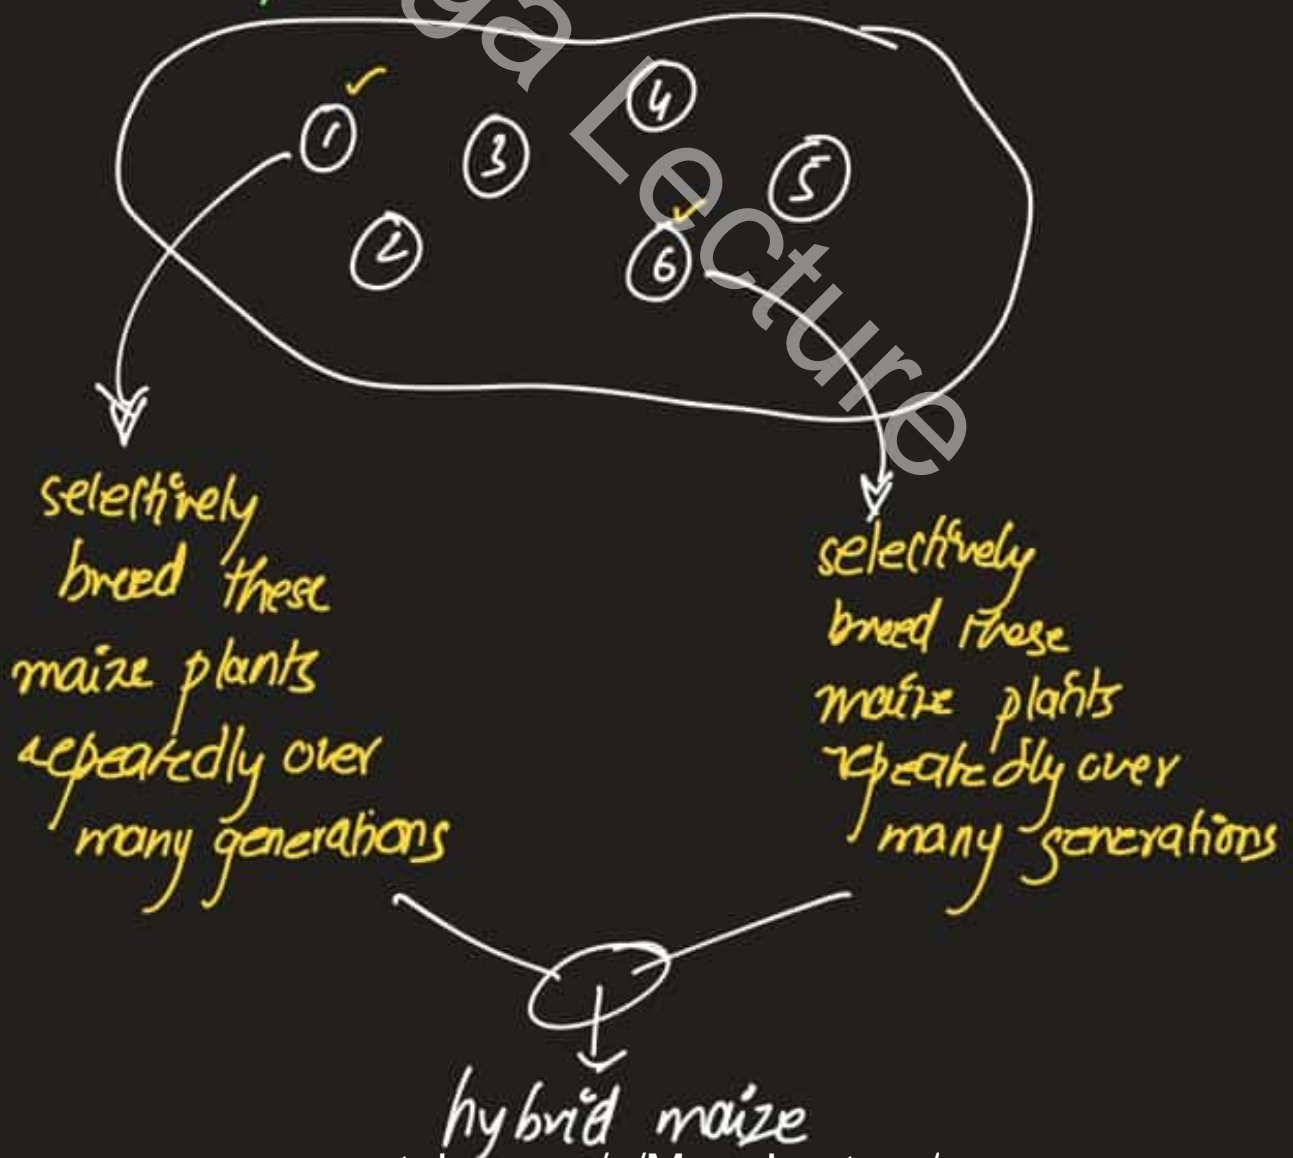 ga Lecture
1
4
3
5
2
6
selectively
breed these
maize plants
repeatedly over
many generations
selectively
breed these
maize plants
repeatedly over
many generations
hybrid maize